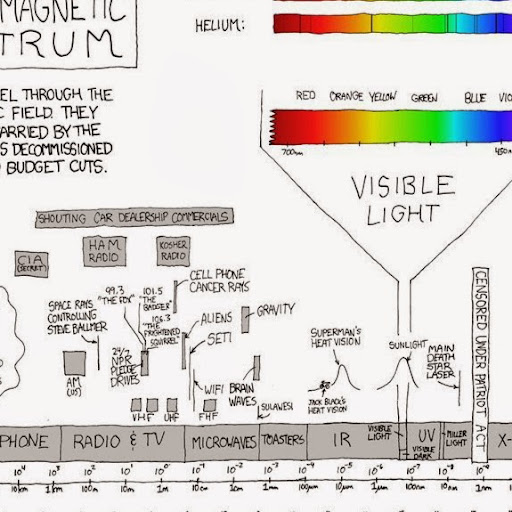 MAGNETIC
TRUM
HELIUM:
EL THROUGH THE
C FIELD. THEY
ARRIED BY THE
S DECOMMISSIONED
BUDGET CUTS.
RED ORANGE YELLOW GREEN BLUE VIO
700nm 450n
VISIBLE
LIGHT
SHOUTING CAR DEALERSHIP COMMERCIALS
CIA
(SECRET)
HAM
RADIO
KOSHER
RADIO
CELL PHONE
CANCER RAYS
99.3
"THE FOX"
101.5
"THE
BADGER"
106.3
"THE
FRIGHTENED
SQUIRREL"
SPACE RAYS
CONTROLLING
STEVE BALLMER
24/7
NPR
PLEDGE
DRIVES
AM
(US)
ALIENS
SETI
GRAVITY
WIFI
BRAIN
WAVES
SULAWESI
SUPERMAN'S
HEAT VISION
JACK BLACK'S
HEAT VISION
SUNLIGHT
MAIN
DEATH
STAR
LASER
CENSORED UNDER PATRIOT ACT
VHF UHF FHF
PHONE RADIO & TV MICROWAVES TOASTERS IR
VISIBLE
LIGHT
VISIBLE
DARK
UV
MILLER
LIGHT
X-
10⁴ 10³ 10² 10¹ 10⁰ 10⁻¹ 10⁻² 10⁻³ 10⁻⁴ 10⁻⁵ 10⁻⁶ 10⁻⁷ 10⁻⁸ 10⁻⁹
10km 1km 100m 10m 1m 10cm 1cm 1mm 100μm 10μm 1μm 100nm 10nm 1nm